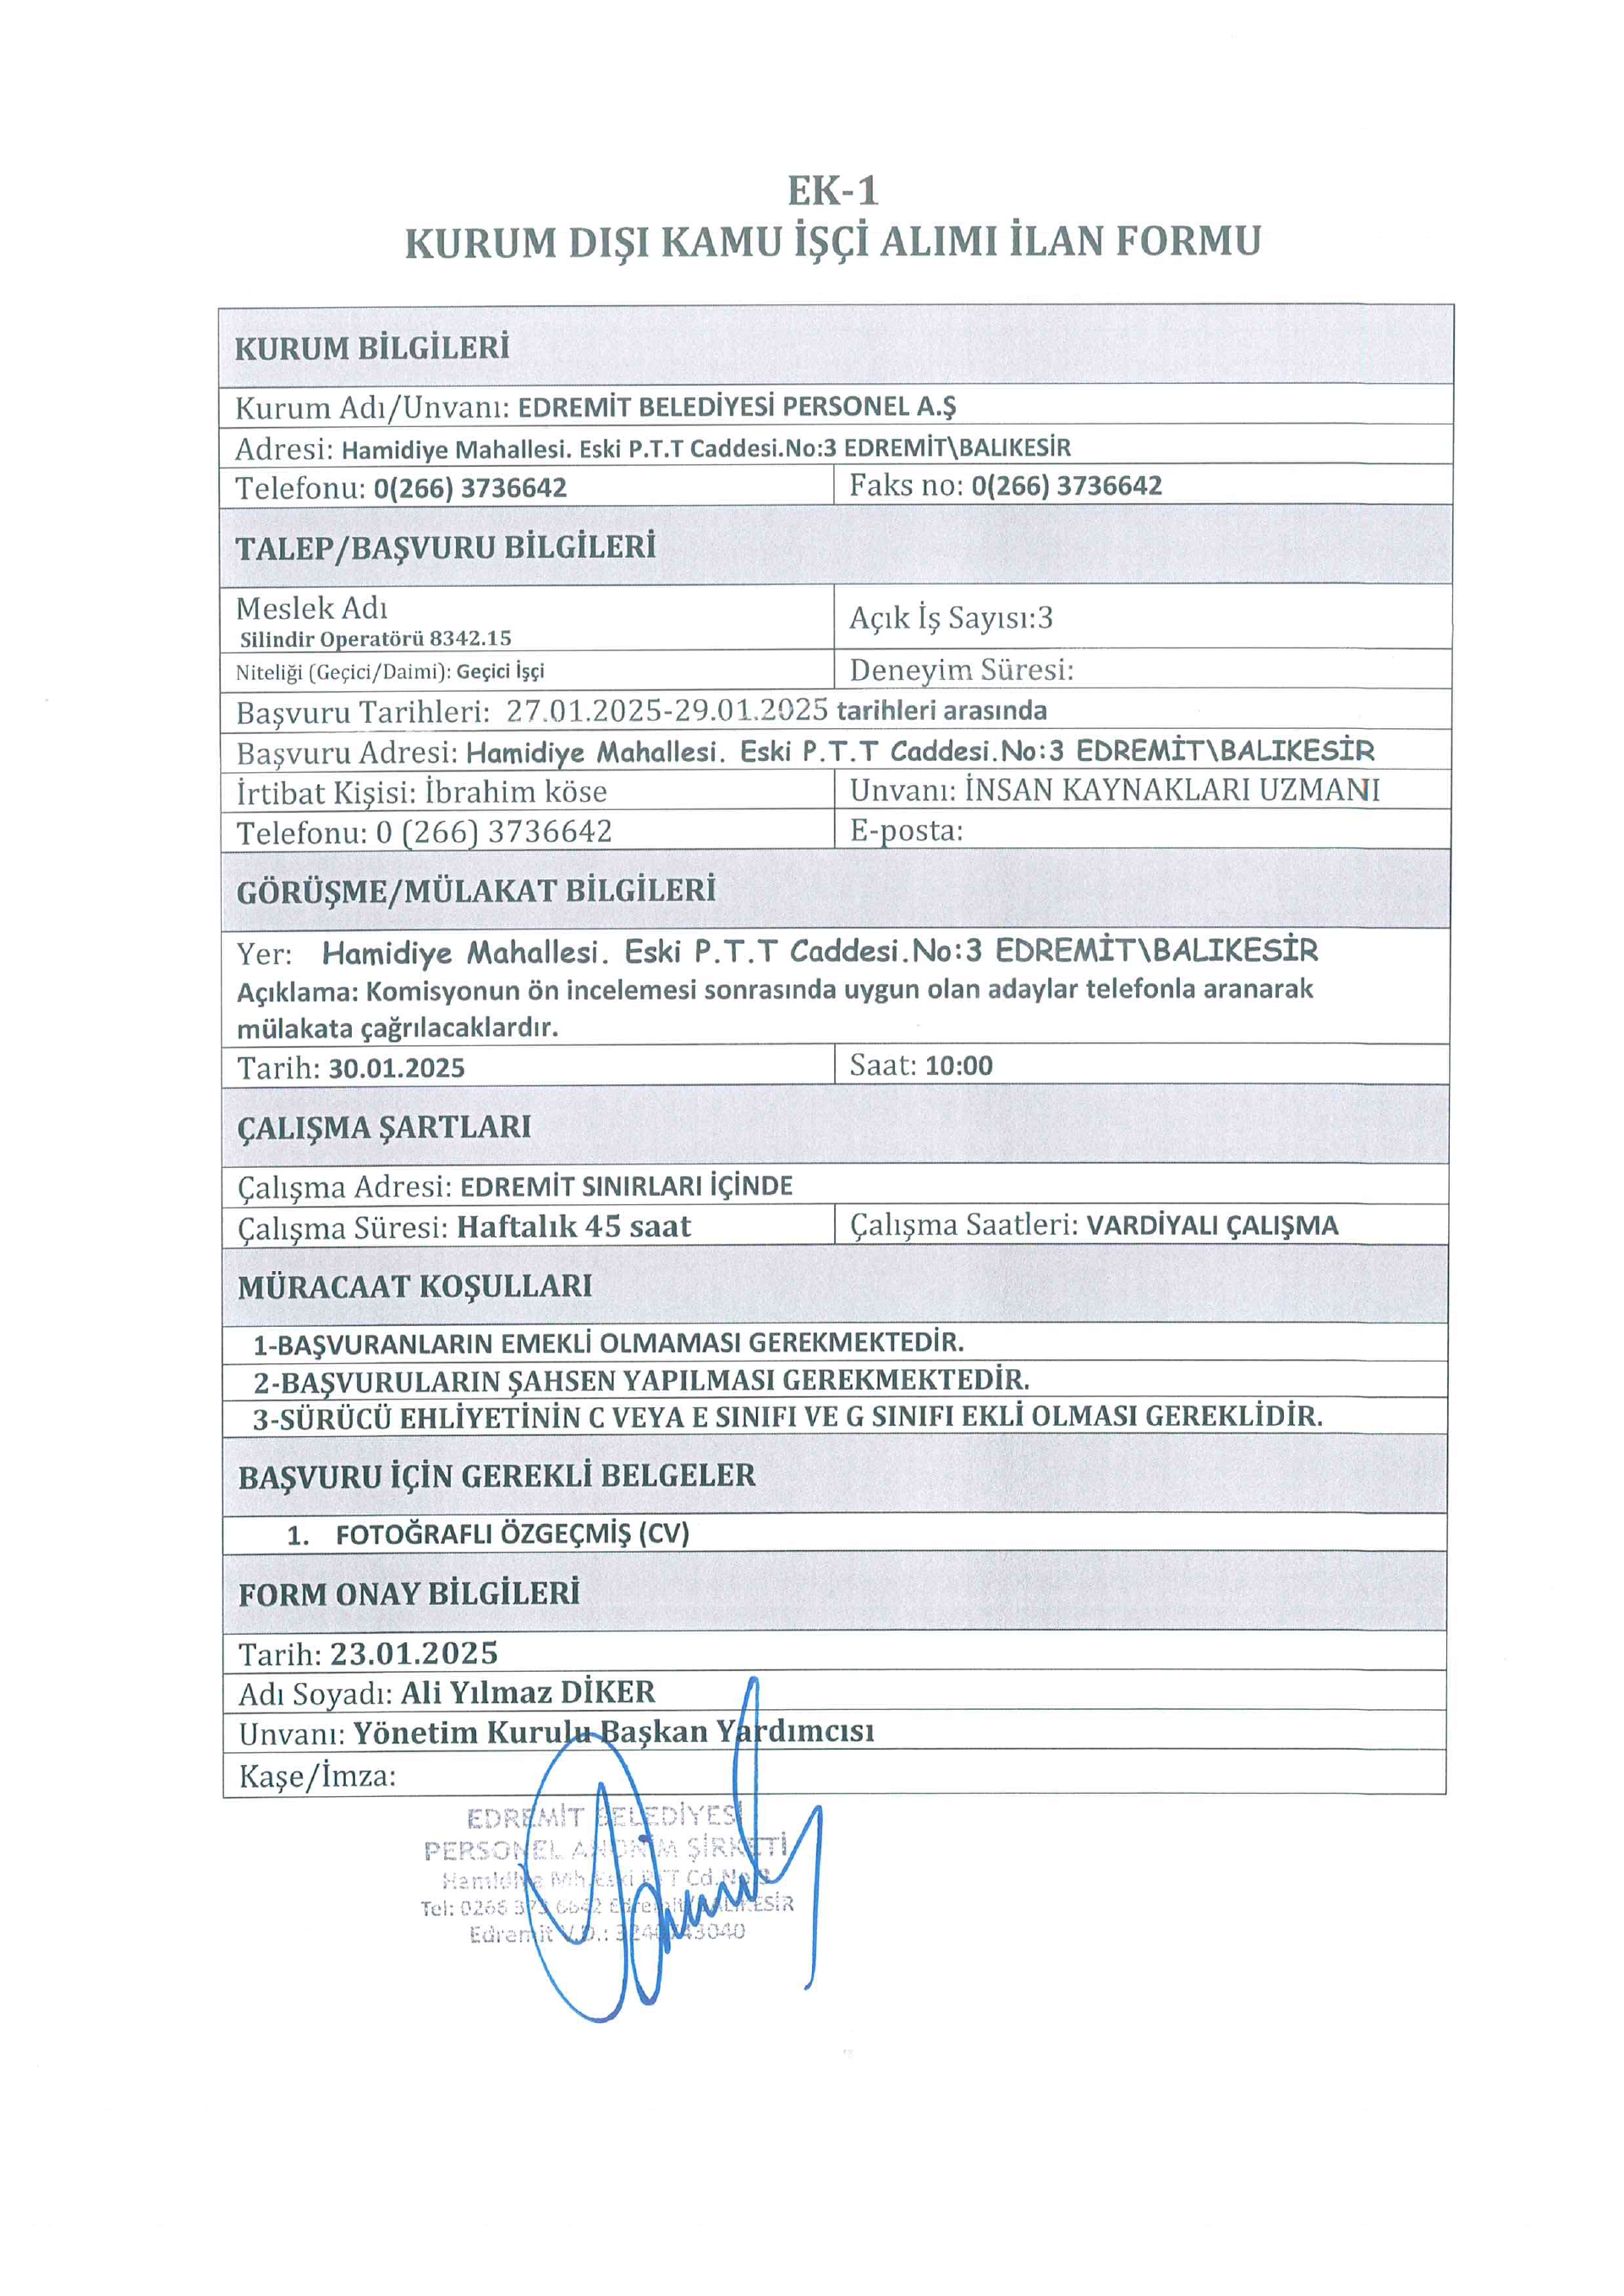 EK-1
KURUM DIŞI KAMU İŞÇİ ALIMI İLAN FORMU
KURUM BİLGİLERİ
Kurum Adı/Unvanı: EDREMİT BELEDİYESİ PERSONEL A.Ş
Adresi: Hamidiye Mahallesi. Eski P.T.T Caddesi.No:3 EDREMİT\BALIKESİR
Telefonu: 0(266) 3736642 Faks no: 0(266) 3736642
TALEP/BAŞVURU BİLGİLERİ
Meslek Adı
Silindir Operatörü 8342.15
Açık İş Sayısı:3
Niteliği (Geçici/Daimi): Geçici İşçi Deneyim Süresi:
Başvuru Tarihleri: 27.01.2025-29.01.2025 tarihleri arasında
Başvuru Adresi: Hamidiye Mahallesi. Eski P.T.T Caddesi.No:3 EDREMİT\BALIKESİR
İrtibat Kişisi: İbrahim köse Unvanı: İNSAN KAYNAKLARI UZMANI
Telefonu: 0 (266) 3736642 E-posta:
GÖRÜŞME/MÜLAKAT BİLGİLERİ
Yer: Hamidiye Mahallesi. Eski P.T.T Caddesi.No:3 EDREMİT\BALIKESİR
Açıklama: Komisyonun ön incelemesi sonrasında uygun olan adaylar telefonla aranarak
mülakata çağrılacaklardır.
Tarih: 30.01.2025 Saat: 10:00
ÇALIŞMA ŞARTLARI
Çalışma Adresi: EDREMİT SINIRLARI İÇİNDE
Çalışma Süresi: Haftalık 45 saat Çalışma Saatleri: VARDİYALI ÇALIŞMA
MÜRACAAT KOŞULLARI
1-BAŞVURANLARIN EMEKLİ OLMAMASI GEREKMEKTEDİR.
2-BAŞVURULARIN ŞAHSEN YAPILMASI GEREKMEKTEDİR.
3-SÜRÜCÜ EHLİYETİNİN C VEYA E SINIFI VE G SINIFI EKLİ OLMASI GEREKLİDİR.
BAŞVURU İÇİN GEREKLİ BELGELER
1. FOTOĞRAFLI ÖZGEÇMİŞ (CV)
FORM ONAY BİLGİLERİ
Tarih: 23.01.2025
Adı Soyadı: Ali Yılmaz DİKER
Unvanı: Yönetim Kurulu Başkan Yardımcısı
Kaşe/İmza:
EDREMİT BELEDİYESİ
PERSONEL ANONİM ŞİRKETİ
Hamidiye Mh. Eski PTT Cd.
Tel: 0266 373 6642 Edremit/BALIKESİR
Edremit V.D.: